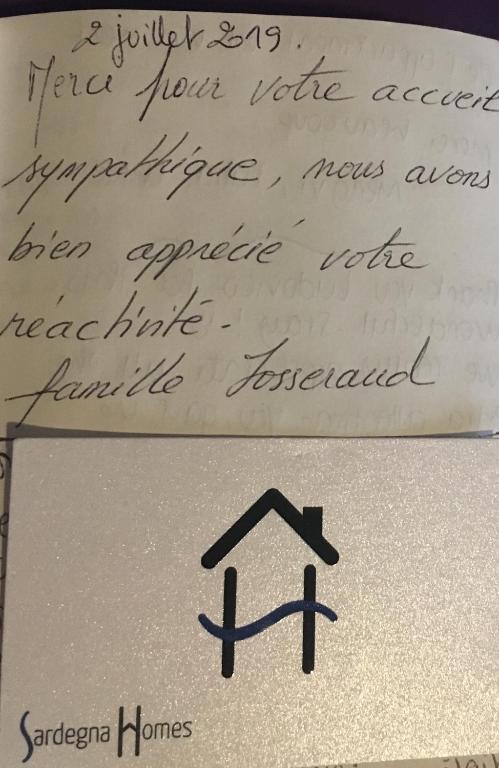 2 juillet 2019.
Merci pour votre accueil
sympathique, nous avons
bien apprécié votre
réactivité.
famille Josserand
Sardegna Homes